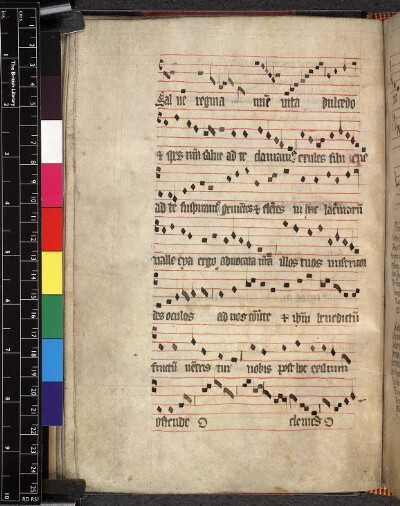 Sal ue regina mie uita dulcedo
& spes nra salue ad te clamam' exules filii eue
ad te suspiram' gementes & flentes in hac lacrimarū
ualle eya ergo aduocata nra illos tuos misericor
des oculos ad nos cōuerte & ihm benedictū
fructū uētris tui nobis post hoc exilium
ostende O clemēs O
The British Library